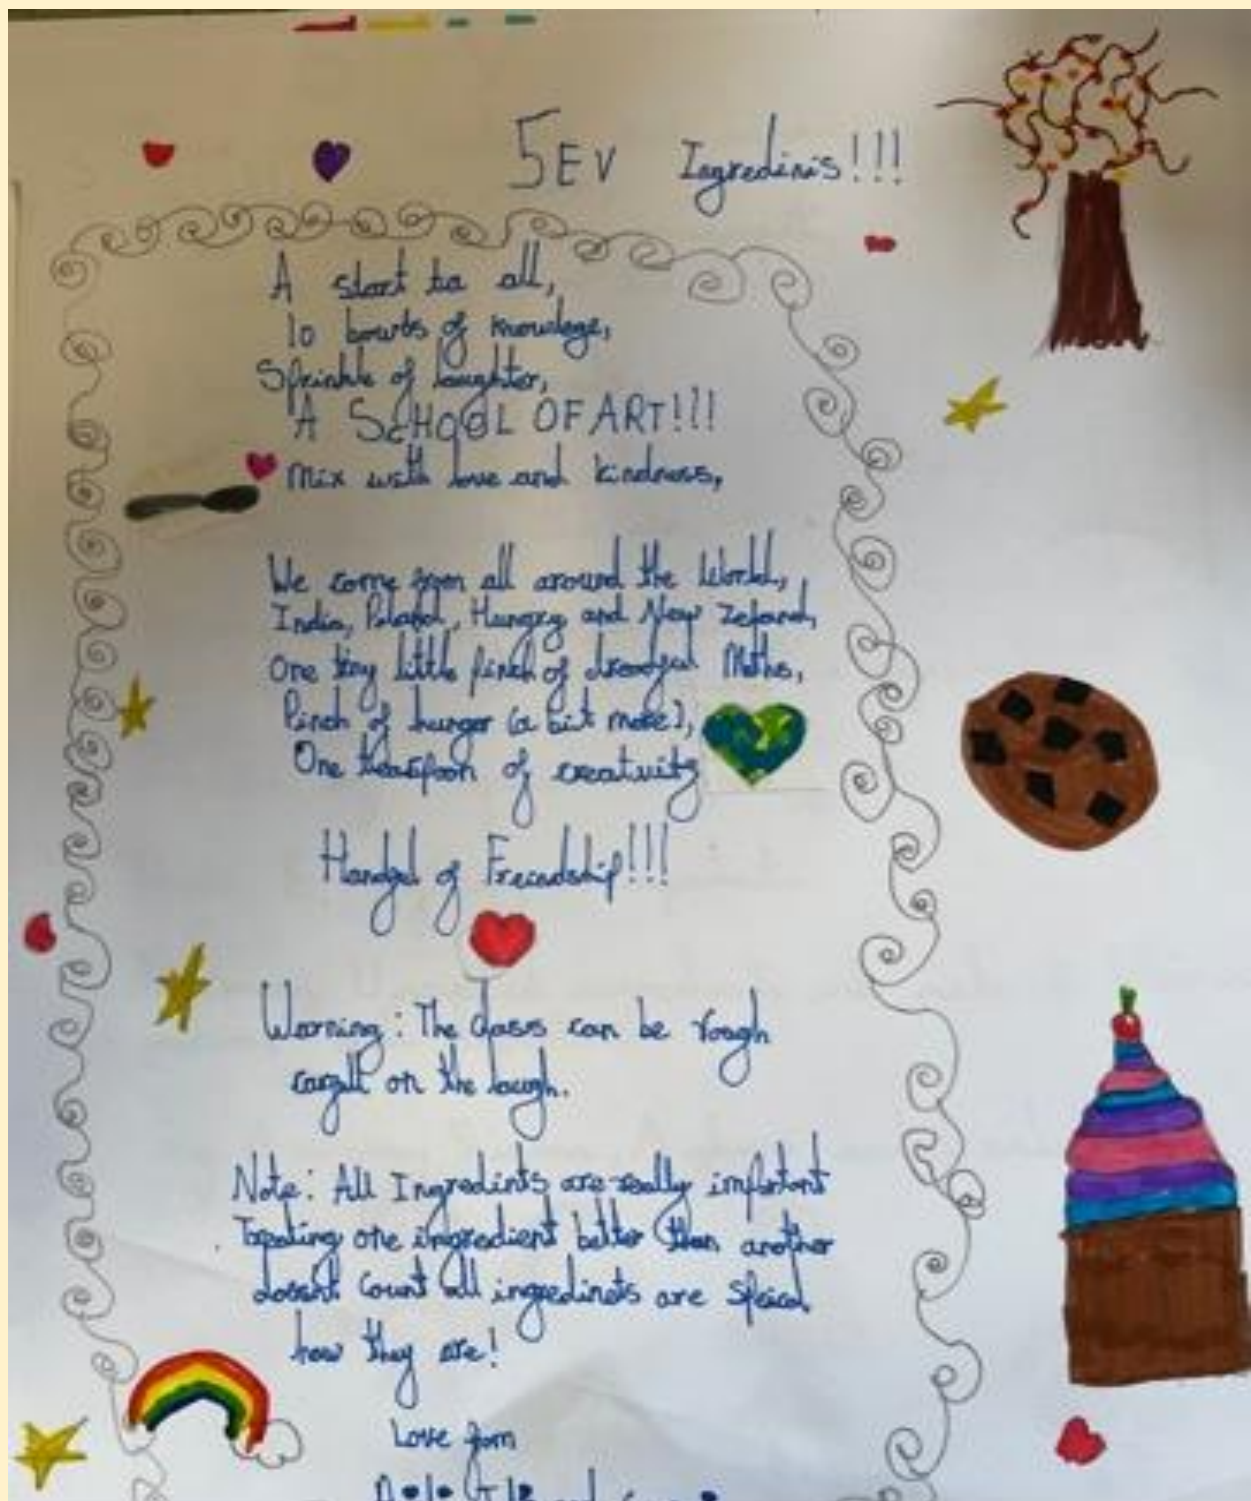 5EV Ingredinis!!!
A start to all,
10 bowls of knowlege,
Sprinkle of laughter,
A SCHOOL OF ART!!!
Mix with love and kindness,
We come from all around the World,
India, Poland, Hungry and New Zeland,
One tiny little pinch of Maths,
Pinch of hunger (a bit more),
One teaspoon of creativity
Handful of Freindship!!!
Warning: The class can be rough
on the laugh.
Note: All Ingredints are really important
one ingredient better than another
Count all ingredinets are
how they are!
Love from